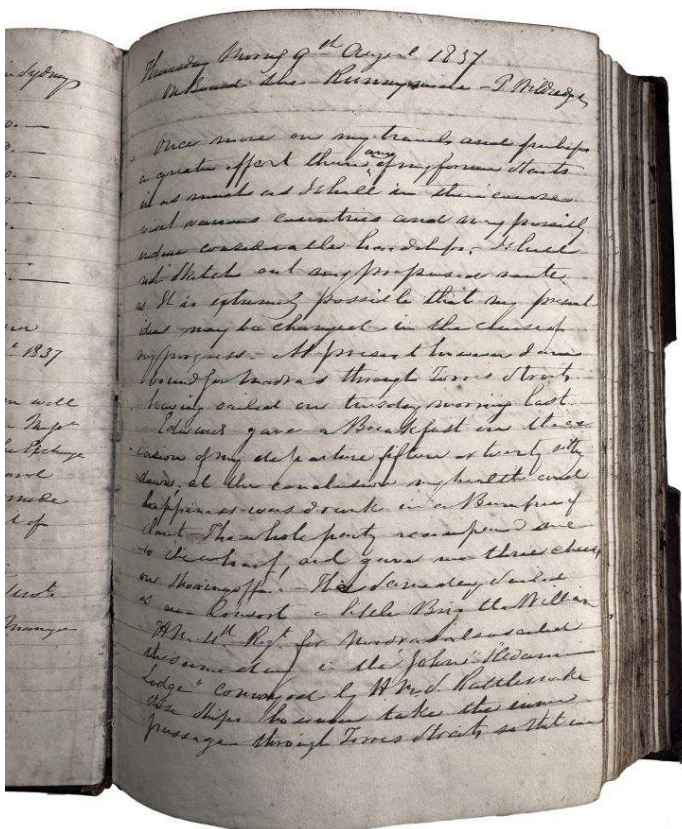 in Sydney
1837
well
Exchange
and
made
t of
Thursday Morng 9th August 1837
On Board the Runnymede - P Mildridge
Once more on my travels and perhaps
a greater effort than any of my former starts
in as much as I shall in their courses
visit various countries and very possibly
endure considerable hardships. I shall
not sketch out my proposed route
as It is extremely possible that my present
ideas may be changed in the course of
my progress - At present however I am
bound for Madras through Torres Straits
having sailed on tuesday morning last
Edwards gave a Breakfast on the oc
casion of my departure fifteen or twenty sitting
down, at the conclusion my health and
happiness was drunk in a Bumper of
The whole party accompanied me
to the wharf, and gave me three cheers
on shoving off. - The same day sailed
as our Consort a little Brig the William
The 4th Regt for Madras also sailed
the same day in the "John" "Adam
Lodge" convoyed by H M S Rattlesnake
those ships however take the inner
passage through Torres Straits so that we